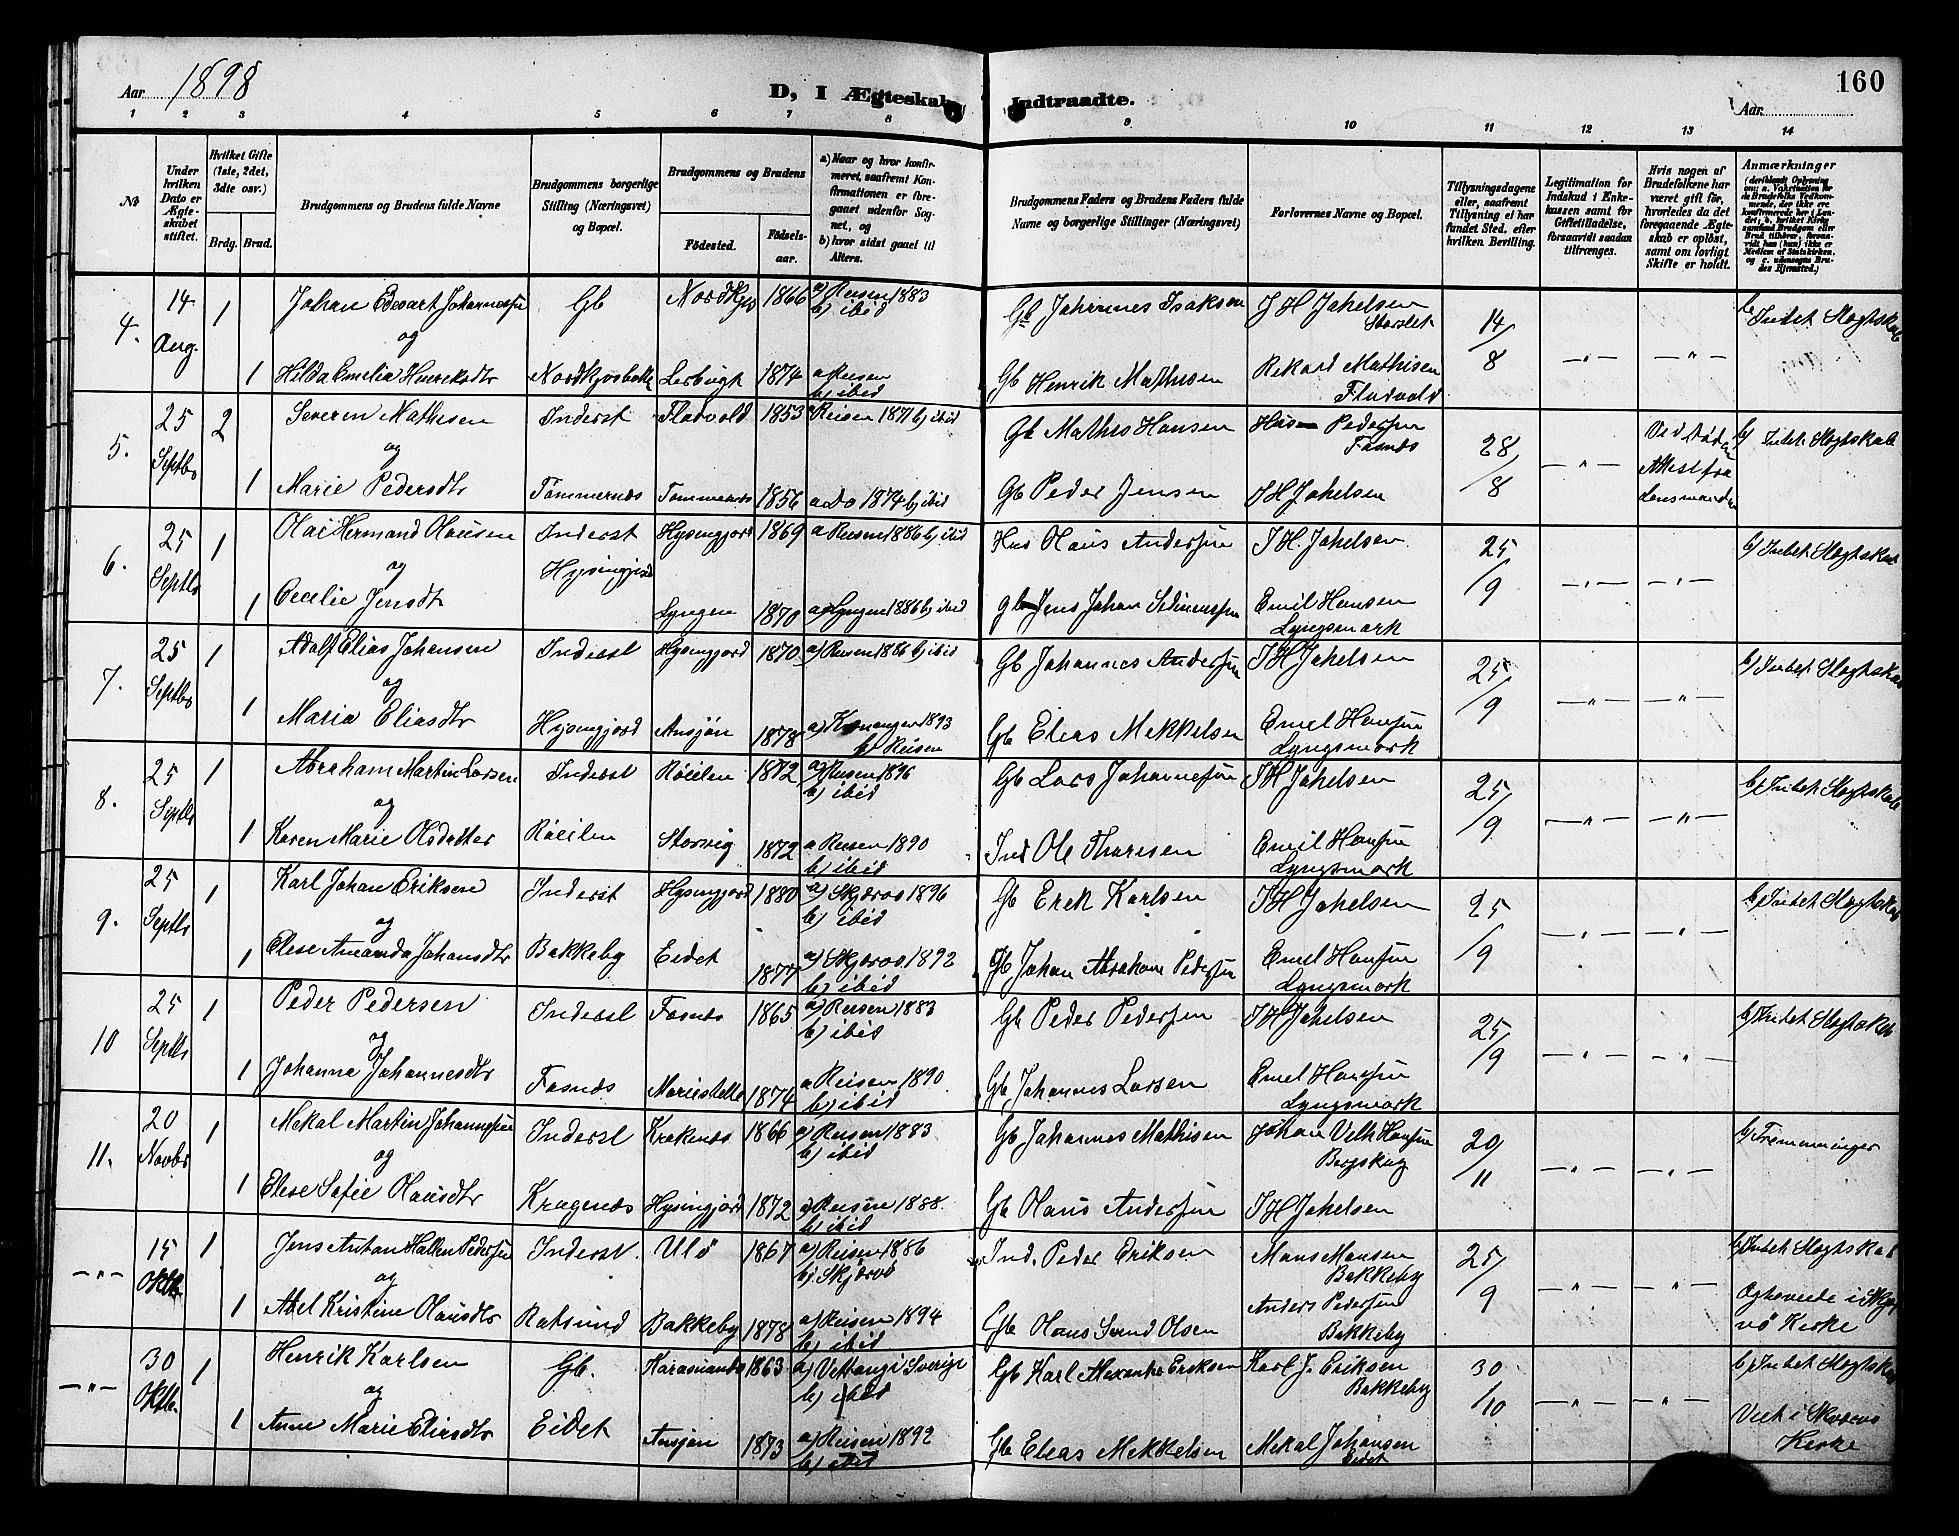 Aar 1898
D, I Ægteskab
Indtraadte.
Aar
160
1 2 3 4 5 6 7 8 9 10 11 12 13 14
No
Under hvilken Dato er Ægteskabet stiftet.
Hvilket Gifte (1ste, 2det, 3die osv.)
Brdg. Brud.
Brudgommens og Brudens fulde Navne
Brudgommens borgerlige Stilling (Næringsvei) og Bopæl.
Brudgommens og Brudens
Fødested.
Fødselsaar.
a) Naar og hvor konfirmeret, saafremt Konfirmationen er foregaaet udenfor Sognet, og
b) hvor sidst gaaet til Alters.
Brudgommens Faders og Brudens Faders fulde Navne og borgerlige Stillinger (Næringsvei)
Forlovernes Navne og Bopæl.
Tillysningsdagene eller, saafremt Tillysning ei har fundet Sted, efter hvilken Bevilling.
Legitimation for Indskud i Enkekassen samt for Giftetilladelse, forsaavidt saadan tiltrænges.
Hvis nogen af Brudefolkene har været gift før, hvorledes da det foregaaende Ægteskab er opløst, samt om lovligt Skifte er holdt.
Anmærkninger
4. 14 Aug. 1 Johan Edevart Johannessen Gb 1866 a) Reisen 1883 b) ibid Gb Johannes Isaksen J H Jakelsen Storslet 14/8 b) Intet Slegtskab
og
1 Hilda Emelia Henreksdtr 1874 a Reisen b) ibid Gb Henrik Mathisen Rekard Mathisen Fladvold
5. 25 Septbr 2 Severin Mathesen Inderst Fladvold 1853 Reisen 1871 b) ibid Gb Mathis Hansen Pedersen Fosnes 28/8 b) Intet Slegtskab
og
1 Marie Pedersdtr Tømmernes Tømmernes 1856 a Do 1874 b) ibid Gb Peder Jensen J H Jakelsen Attest fra Lensmanden
6. 25 Septbr 1 Olai Hermand Olausen Inderst Hysingjord 1869 a Reisen 1886 b) ibid Olaus Andersen J H. Jakelsen 25/9 b) Intet Slegtskab
og Hysingjord
1 Cecelie Jensdtr Lyngen 1870 a Lyngen 1886 b) ibid Gb Jens Johan Emil Hansen Lyngsmark
7. 25 Septbr 1 Adolf Elias Johansen Inderst Hysingjord 1870 a) Reisen 1886 b) ibid Gb Johannes Andersen J H Jakelsen 25/9 b) Intet Slegtskab
og
1 Maria Eliasdtr Hysingjord Ansjøn 1878 1893 b) Reisen Gb Eleas Mekkelsen Emel Hansen Lyngsmark
8. 25 Septbr 1 Abraham Martin Larsen Inderst Røeilen 1872 a) Reisen 1896 b) ibid Gb Lars Johannesen J H Jakelsen 25/9 b) Intet Slegtskab
og
1 Karen Marie Olsdatter Røeilen Storvig 1872 a Reisen 1890 b) ibid Ind Ole Thoresen Emil Hansen Lyngsmark
9. 25 Septbr 1 Karl Johan Eriksen Inderst Hysingjord 1880 a) Skjærvø 1896 b) ibid Gb Erek Karlsen J H Jakelsen 25/9 b) Intet Slegtskab
og
1 Elese Amanda Johansdtr Bakkeby Eidet 1877 a) Skjærvø 1892 b) ibid Gb Johan Abraham Pedersen Emel Hansen Lyngsmark
10 25 Septbr 1 Peder Pedersen Inderst Fosnes 1865 a) Reisen 1883 b) ibid Gb Peder Pedersen J H Jakelsen 25/9 b) Intet Slegtskab
og
1 Johanna Johannesdtr Fosnæs 1874 a Reisen 1890 b) ibid Gb Johannes Larsen Emel Hansen Lyngsmark
11. 20 Novbr 1 Mekal Martin Johannesen Inderst Krakenes 1866 a) Reisen 1883 b) ibid Gb Johannes Mathisen Johan Hansen Bergskog 20/11 b) Fremmninger
og
1 Elese Sofie Olausdtr Kragenæs Hysingjord 1872 a) Reisen 1888. b) ibid Gb Olaus Andersen J H Jakelsen
—"— 15 Oktb. 1 Jens Antan Pedersen Inderst. Ulø 1867 a) Reisen 1886 b) Skjærvø Ind. Peder Eriksen Mons Monsen Bakkeby 25/9 b) Intet Slegtskab
og
1 Abel Kristine Olausdtr Rotsund Bakkeby 1878 a) Reisen 1894 b) ibid Gb Olaus Olsen Anders Pedersen Bakkeby i Skjærvø Kerke
—"— 30 Oktb. 1 Henrik Karlsen Gb. 1863 a) Vettangi Sverige b) ibid Gb Karl Alexander Eriksen Karl J. Eriksen Bakkeby 30/10 b) Intet Slegtskab
og
1 Anne Marie Eliasdtr Eidet Ansjøn 1873 a) Reisen 1892 b) ibid Gb Eleas Mekkelsen Mekal Johansen Eidet Viet i Kerke